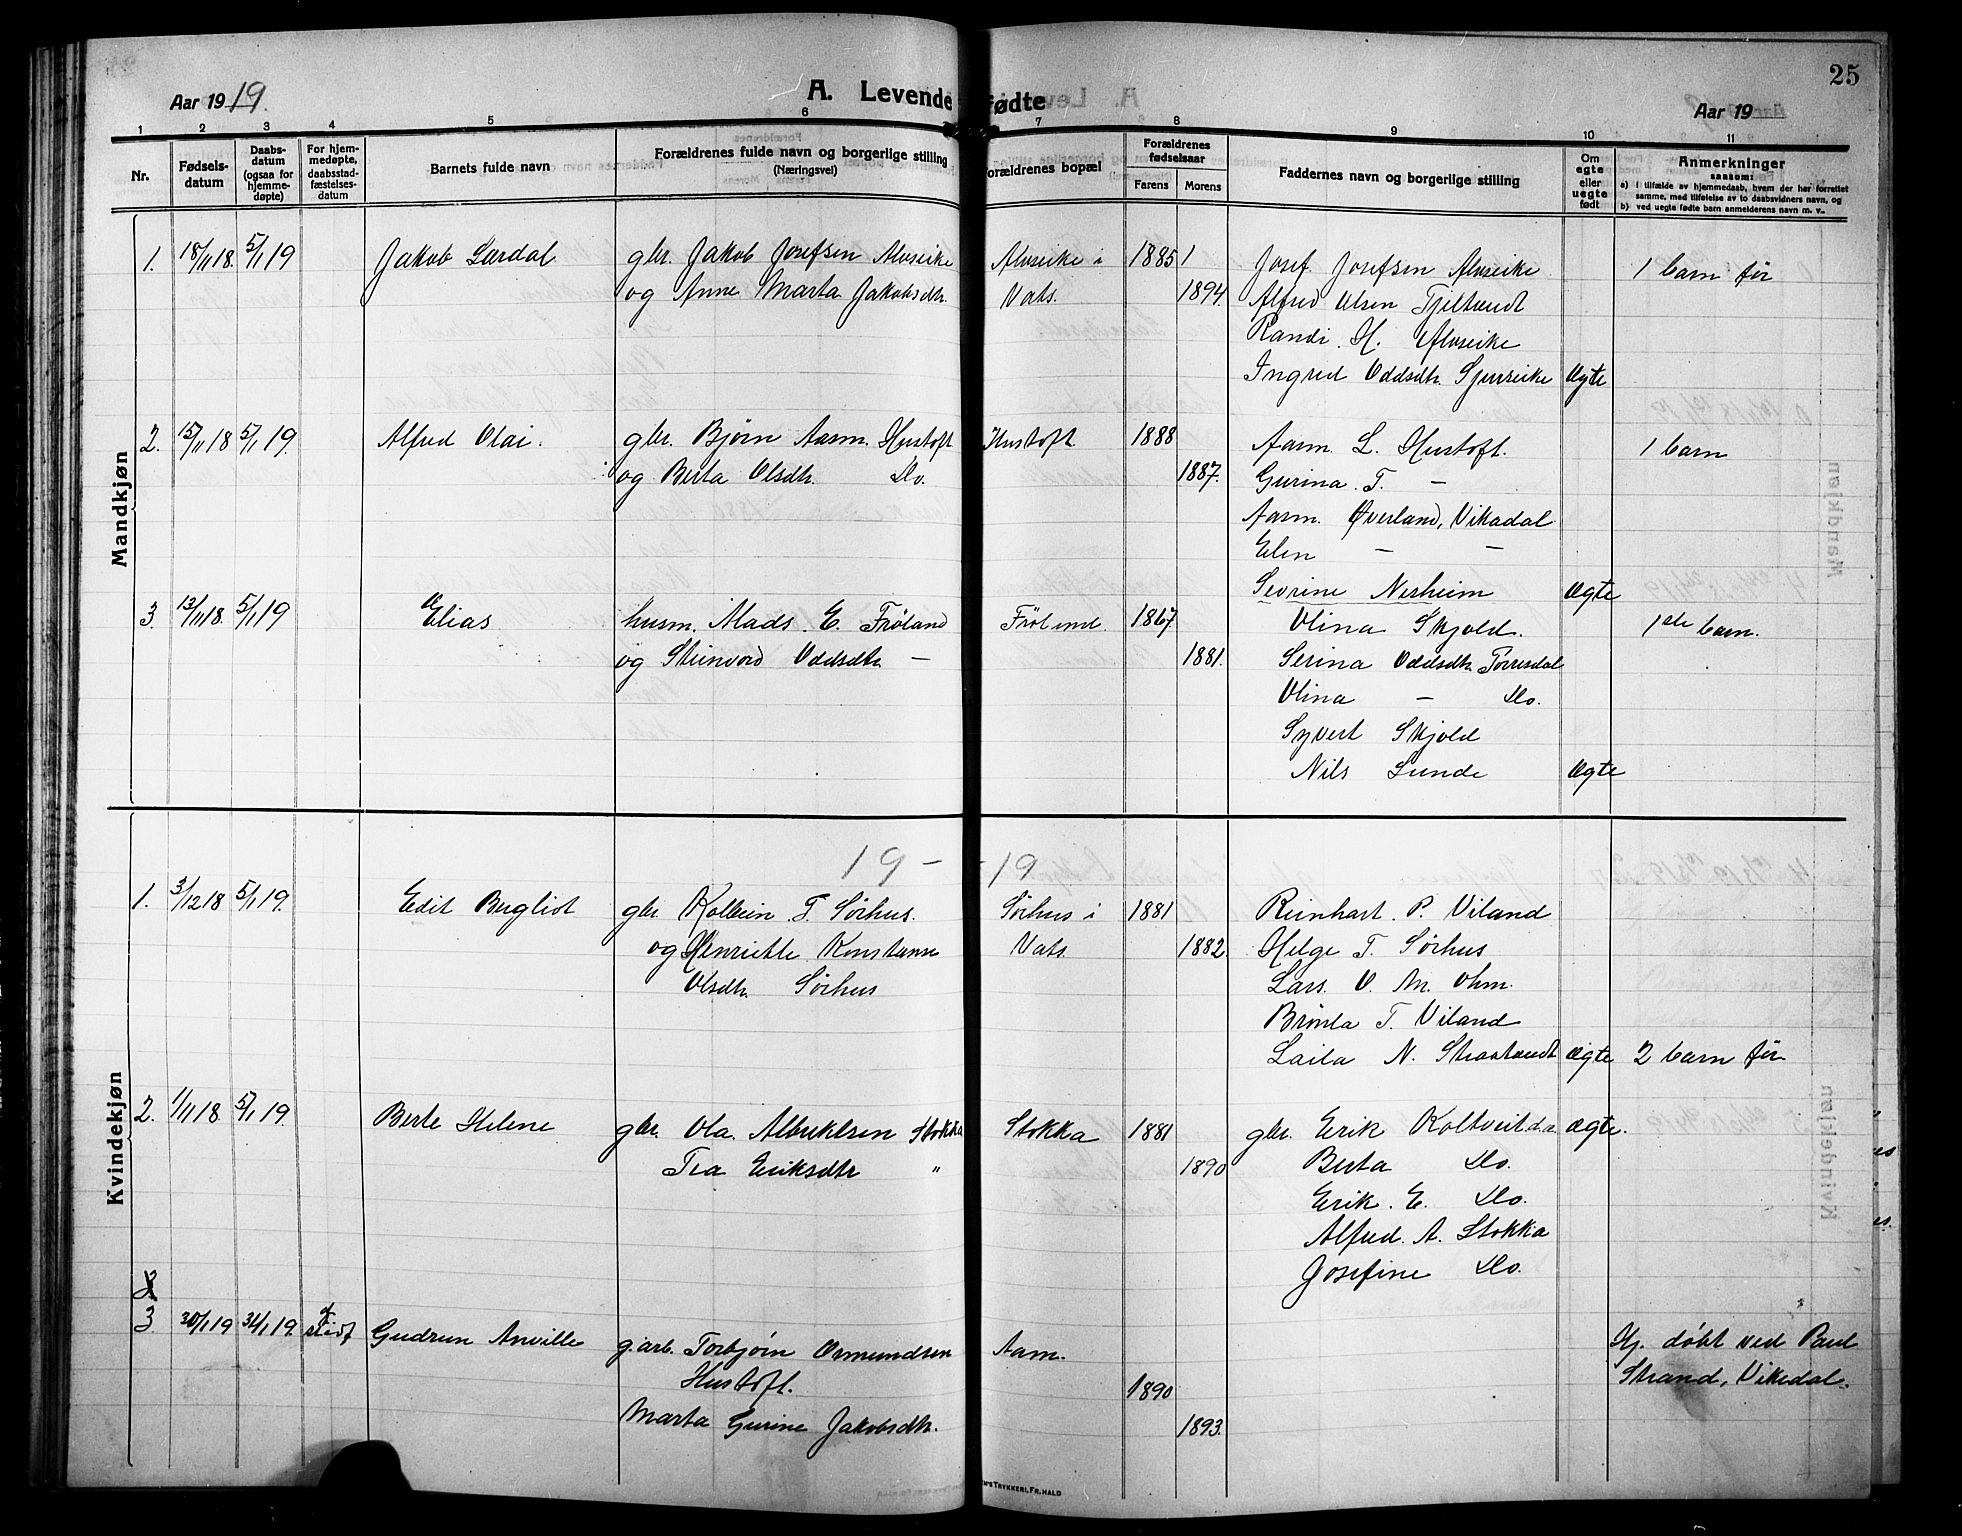 25
Aar 1919.
A. Levende fødte
Aar 19
1 2 3 4 5 6 7 8 9 10 11
Nr.
Fødselsdatum
Daabsdatum (ogsaa for hjemmedøpte)
For hjemmedøpte, daabsstadfæstelsesdatum
Barnets fulde navn
Forældrenes fulde navn og borgerlige stilling (Næringsvei)
Forældrenes bopæl
Forældrenes fødselsaar
Farens Morens
Faddernes navn og borgerlige stilling
Om egte eller uegte født
Anmerkninger saasom:
a) i tilfælde av hjemmedaab, hvem der har forrettet samme, med tilføielse av to daabsvidners navn, og
b) ved uegte fødte barn anmelderens navn m. v..
Mandkjøn
1. 18/11 18. 5/1 19 Jakob Lærdal gbr. Jakob Josefsen Alvseike Alvseike i 1885 Josef Josefsen Alvseike 1 barn før
og Anne Marta Jakobsdtr. Vats. 1894. Alfred Olsen Tjeltvedt
Randi H. Alvseike
Ingred Oddsdtr. Sjurseike Ægte
2. 15/11 18 5/1 19. Alfred Olai. gbr. Bjørn Aasm. Hustoft Hustoft 1888 Aasm. L. Hustoft. 1 barn
og Berta Olsdtr. Do. 1887. Gurina T. —
Aasm. Øverland, Vikadal
Elen — —
Sevrine Nesheim Ægte
3. 13/11 18. 5/1 19 Elias husm. Mads. E. Frøland Frøland. 1867 Olina Skjold. 1ste barn.
og Steinvord Oddsdtr — 1881. Serina Oddsdtr. Torresdal
Olina — Do.
Syvert Skjold
Nils Lunde Ægte
Kvindekjøn
19 - - 19
1. 3/12 18 5/1 19. Edit Bergliot gbr Kolbein T. Sørhus. Sørhus i 1881 Reinhart. P. Viland
og Henriette Konstanse Vats 1882. Helge T. Sørhus
Olsdtr. Sørhus Lars. O. M. Ohm.
T. Viland
Laila N. Ægte 2 barn før
2. 1/11 18. 5/1 19. Berte Helene gbr. Ola. Albriktsen Stokka Stokka 1881 gbr. Erik Koltveit Ægte.
Tea Eriksdtr " 1890 Berta Do.
Erik. E. Do.
Alfred. A. Stokka
Josefine Do.
3 30/1 19 31/1 19. Gudrun Anville g.arb. Torbjørn Osmundsen Aam. Hj. døbt ved Paul
Hustoft. 1890 Strand, Vikedal.
Marta Gurine Jakobsdtr. 1893.
N'S TRYKKERI, FR.HALD